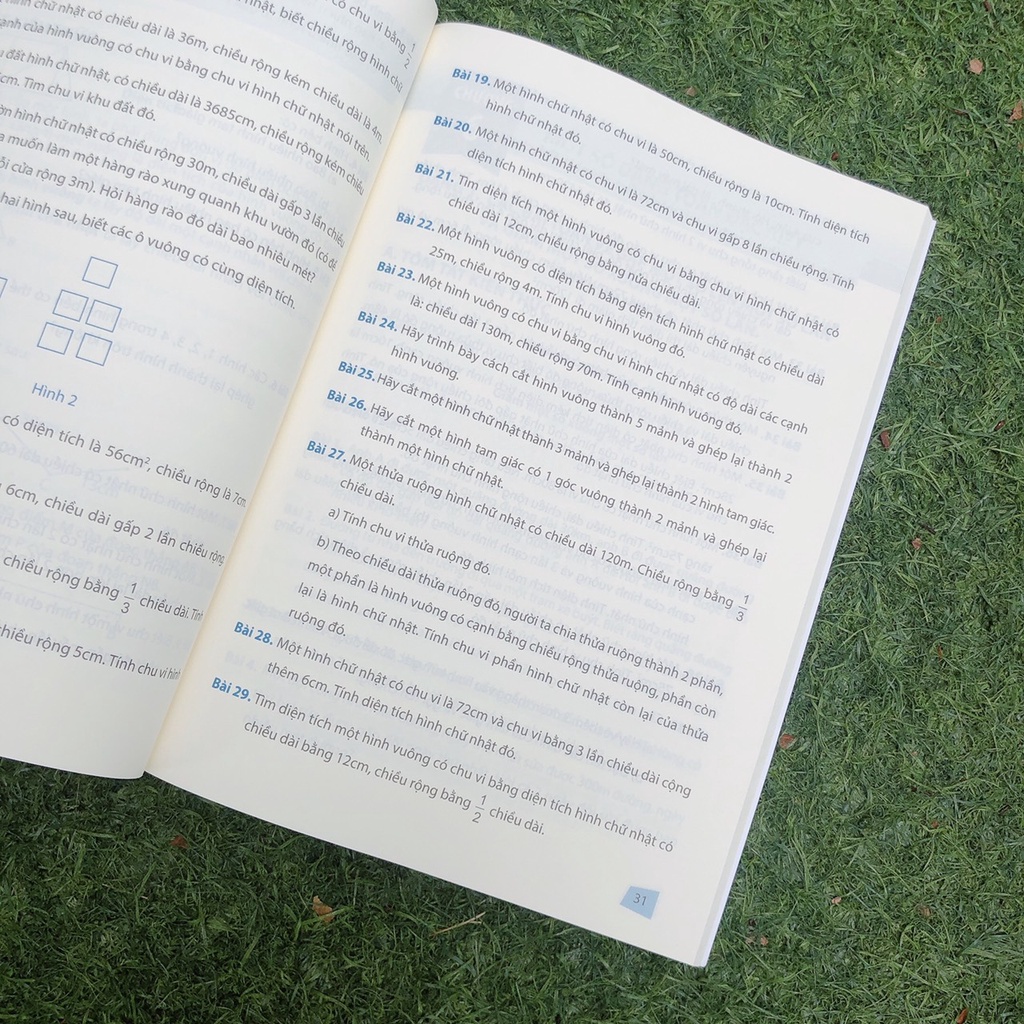 có chu vi bằng 1/2
nhật, biết chiều rộng hình chữ
hình chữ nhật có chiều dài là 36m, chiều rộng kém chiều dài là 4m.
cạnh của hình vuông có chu vi bằng chu vi hình chữ nhật nói trên.
đất hình chữ nhật, có chiều dài là 3685cm, chiều rộng kém chiều
cm. Tìm chu vi khu đất đó.
hình chữ nhật có chiều rộng 30m, chiều dài gấp 3 lần chiều
muốn làm một hàng rào xung quanh khu vườn đó (có để
cửa rộng 3m). Hỏi hàng rào đó dài bao nhiêu mét?
hai hình sau, biết các ô vuông có cùng diện tích.
Hình 2
có diện tích là 56cm², chiều rộng là 7cm
6cm, chiều dài gấp 2 lần chiều rộng
chiều rộng bằng 1/3 chiều dài. Tính
chiều rộng 5cm. Tính chu vi hình
Bài 19. Một hình chữ nhật có chu vi là 50cm, chiều rộng là 10cm. Tính diện tích
hình chữ nhật đó.
Bài 20. Một hình chữ nhật có chu vi là 72cm và chu vi gấp 8 lần chiều rộng. Tính
diện tích hình chữ nhật đó.
Bài 21. Tìm diện tích một hình vuông có chu vi bằng chu vi hình chữ nhật có
chiều dài 12cm, chiều rộng bằng nửa chiều dài.
Bài 22. Một hình vuông có diện tích bằng diện tích hình chữ nhật có chiều dài
25m, chiều rộng 4m. Tính chu vi hình vuông đó.
Bài 23. Một hình vuông có chu vi bằng chu vi hình chữ nhật có độ dài các cạnh
là: chiều dài 130m, chiều rộng 70m. Tính cạnh hình vuông đó.
Bài 24. Hãy trình bày cách cắt hình vuông thành 5 mảnh và ghép lại thành 2
hình vuông.
Bài 25. Hãy cắt một hình chữ nhật thành 3 mảnh và ghép lại thành 2 hình tam giác.
Bài 26. Hãy cắt một hình tam giác có 1 góc vuông thành 2 mảnh và ghép lại
thành một hình chữ nhật.
Bài 27. Một thửa ruộng hình chữ nhật có chiều dài 120m. Chiều rộng bằng 1/3
chiều dài.
a) Tính chu vi thửa ruộng đó.
b) Theo chiều dài thửa ruộng đó, người ta chia thửa ruộng thành 2 phần,
một phần là hình vuông có cạnh bằng chiều rộng thửa ruộng, phần còn
lại là hình chữ nhật. Tính chu vi phần hình chữ nhật còn lại của thửa
ruộng đó.
Bài 28. Một hình chữ nhật có chu vi là 72cm và chu vi bằng 3 lần chiều dài cộng
thêm 6cm. Tính diện tích hình chữ nhật đó.
Bài 29. Tìm diện tích một hình vuông có chu vi bằng diện tích hình chữ nhật có
chiều dài bằng 12cm, chiều rộng bằng 1/2 chiều dài.
31